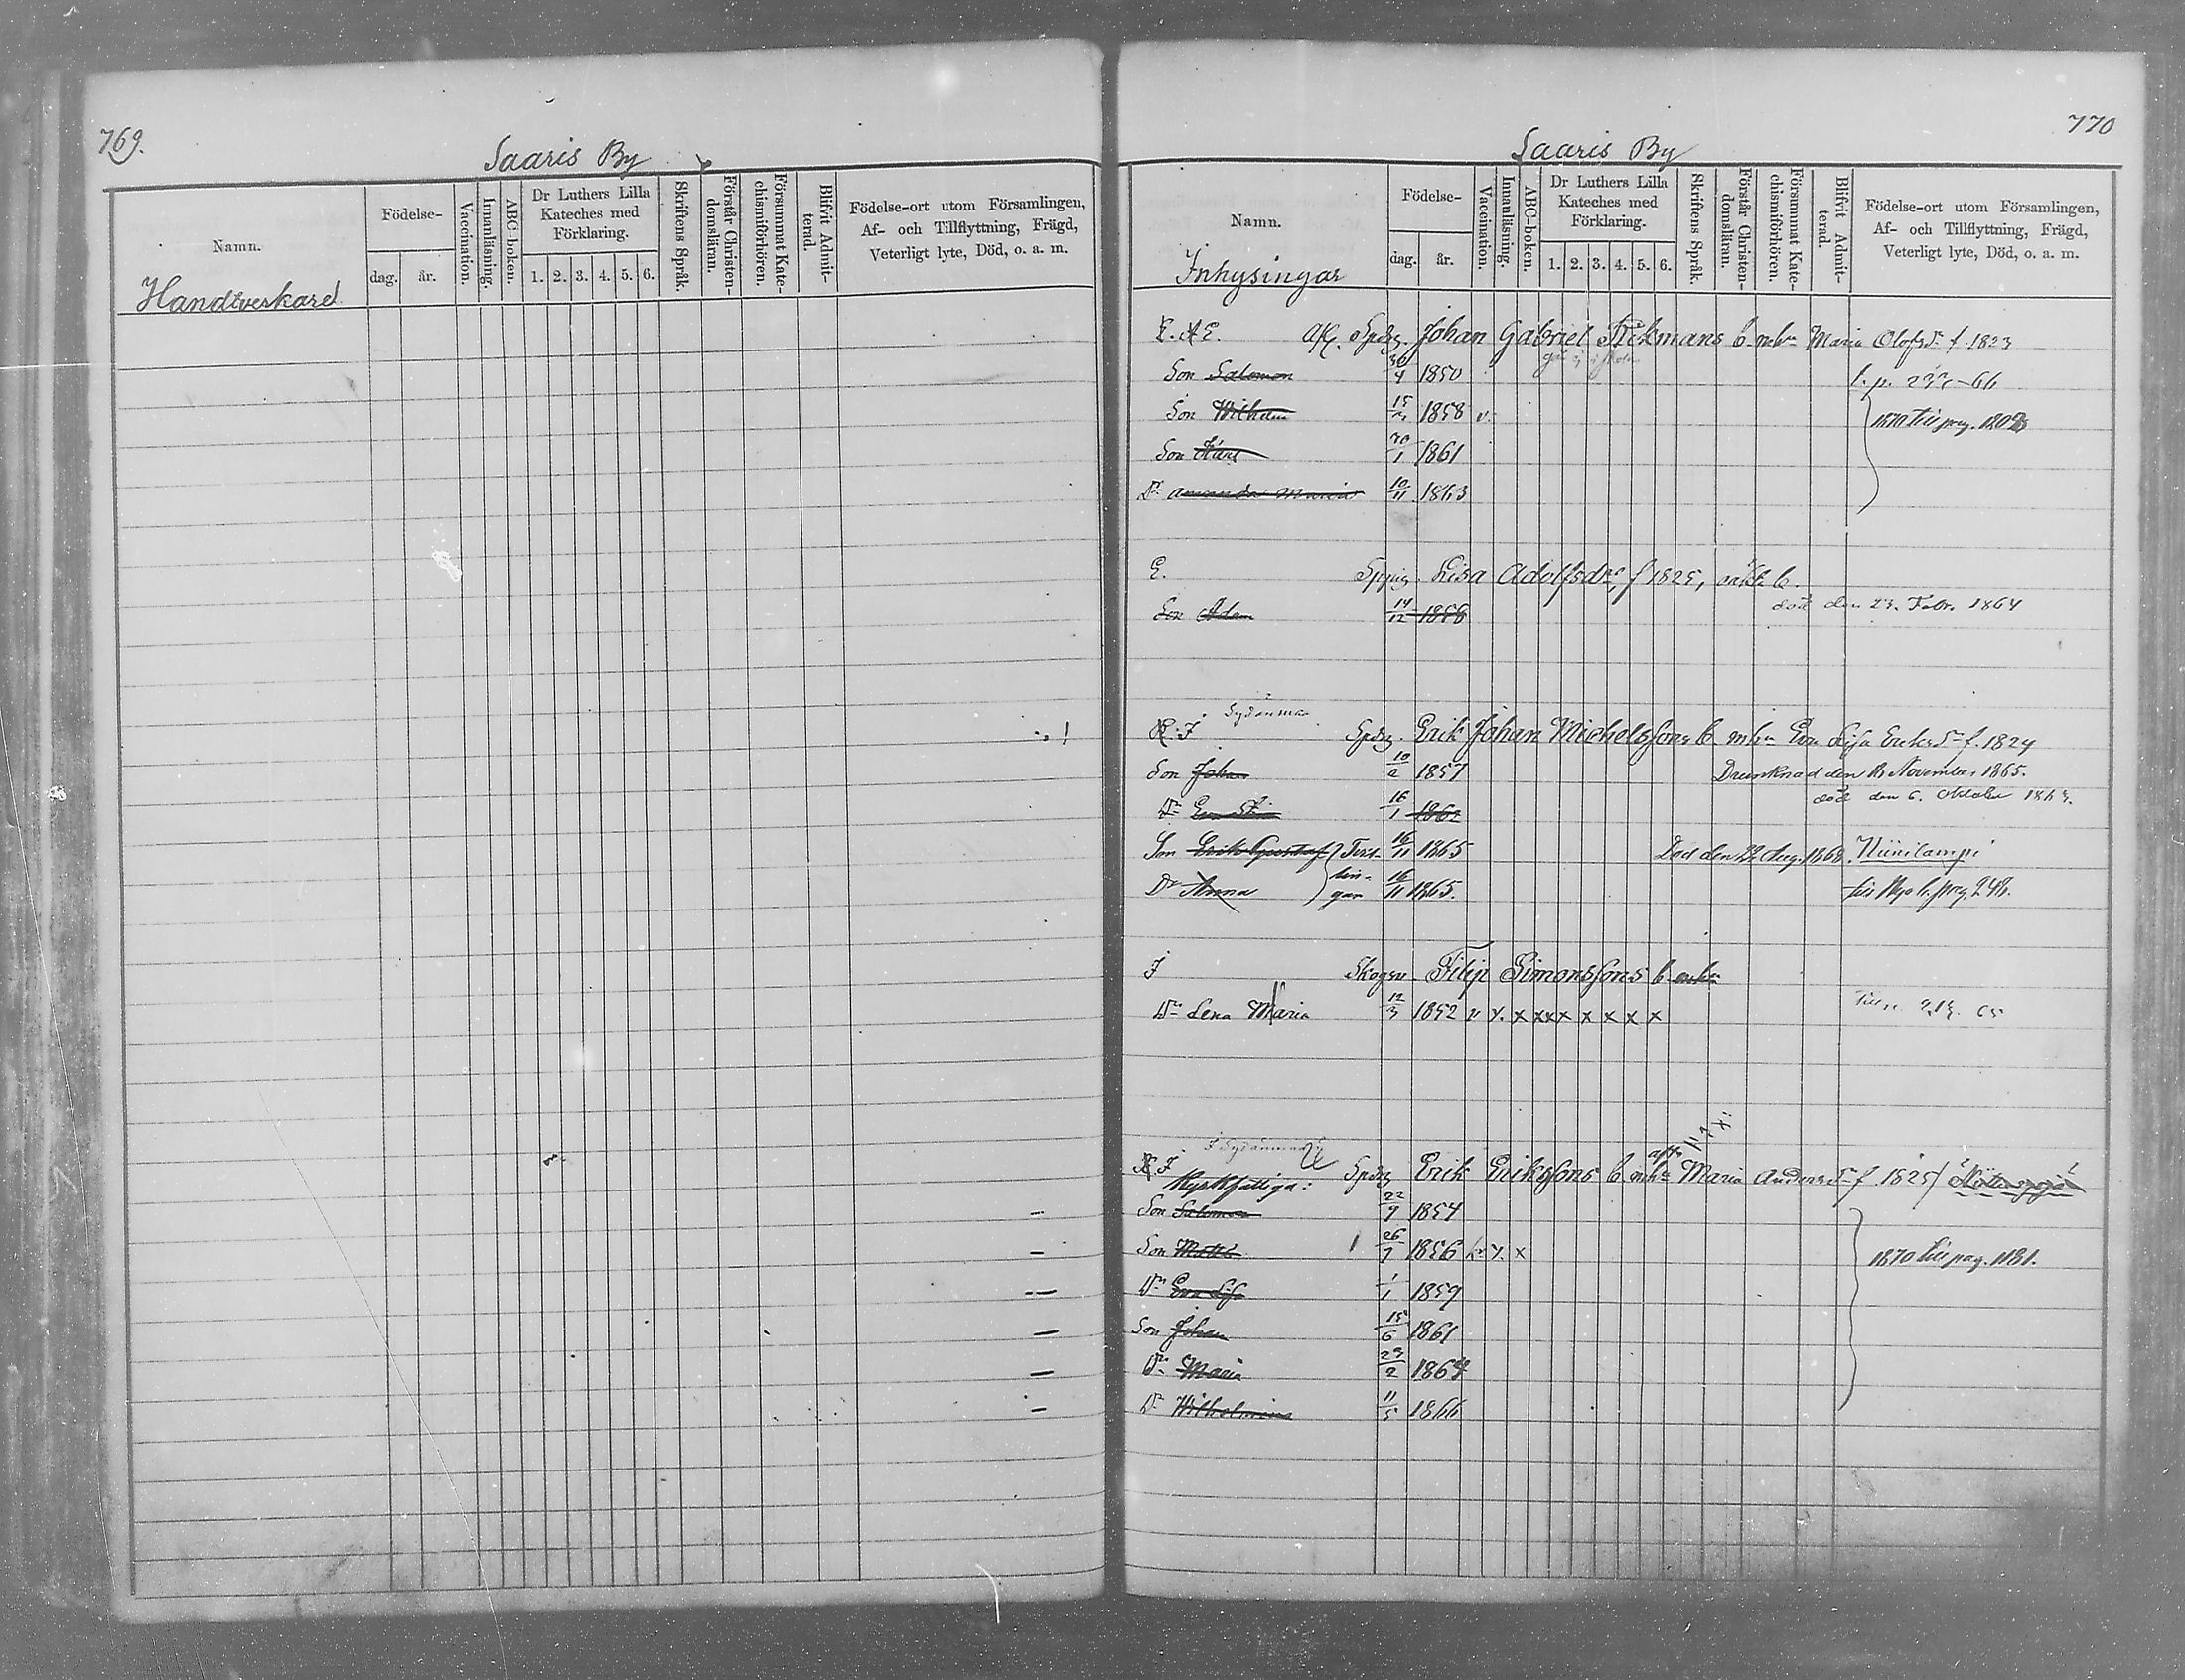 769.
Saaris By
Namn.
Handtverkare
Födelse-
dag.
år.
Vaccination.
Innanläsning.
ABC-boken.
Dr Luthers Lilla Kateches med Förklaring.
1. 2. 3. 4. 5. 6.
Skriftens Språk.
Förstår Christen-domsläran.
Försummat Kate-chismiförhören.
Blifvit Admit-terad.
Födelse-ort utom Församlingen,
Af- och Tillflyttning, Frägd,
Veterligt lyte, Död, o. a. m.
770
Saaris By
Namn.
Inhysingar
Födelse-
dag.
år.
Vaccination.
Innanläsning.
ABC-boken.
Dr Luthers Lilla Kateches med Förklaring.
1. 2. 3. 4. 5. 6.
Skriftens Språk.
Förstår Christen-domsläran.
Försummat Kate-chismiförhören.
Blifvit Admit-terad.
Födelse-ort utom Församlingen,
Af- och Tillflyttning, Frägd,
Veterligt lyte, Död, o. a. m.
Johan Gabriel b. Maria Olofsdr f. 1823
Son Salomon 1850
Son Wilhelm 15 1858 v.
1870 till pag.
Son 1861
Dr Amanda Maria 10/11 1863
E. Lisa Adolfsdr, f 1825,
död den 23. Febr. 1864
Son Adam 14/12 1856
Sydänmaa
Erik Johan Michelssons b. Eva Lisa Eriksdr f. 1824
Son Johan 10/2 1857 Drunknad den November 1865.
död den 6. Oktober
Dr 16/1 1862
Son Erik Gustaf 16/11 1865 Död den 22 Aug. 1868. Niinilampi
Dr Anna 16/11 1865. pag. 248.
I Filip Simonssons b.
Dr Lena Maria 12/3 1852 v x x x x x x x x
I Sydänmaa
Erik Erikssons b. Maria Andersdr f. 1825
Kyrkfattiga:
Son Salomon 22/9 1854
Son Matts 26/7 1856 x
1870 till pag. 1181.
Dr Eva Lisa 1/1 1859
Son Johan 15/6 1861
Dr Maria 23/2 1864
Dr Wilhelmina 11/5 1866